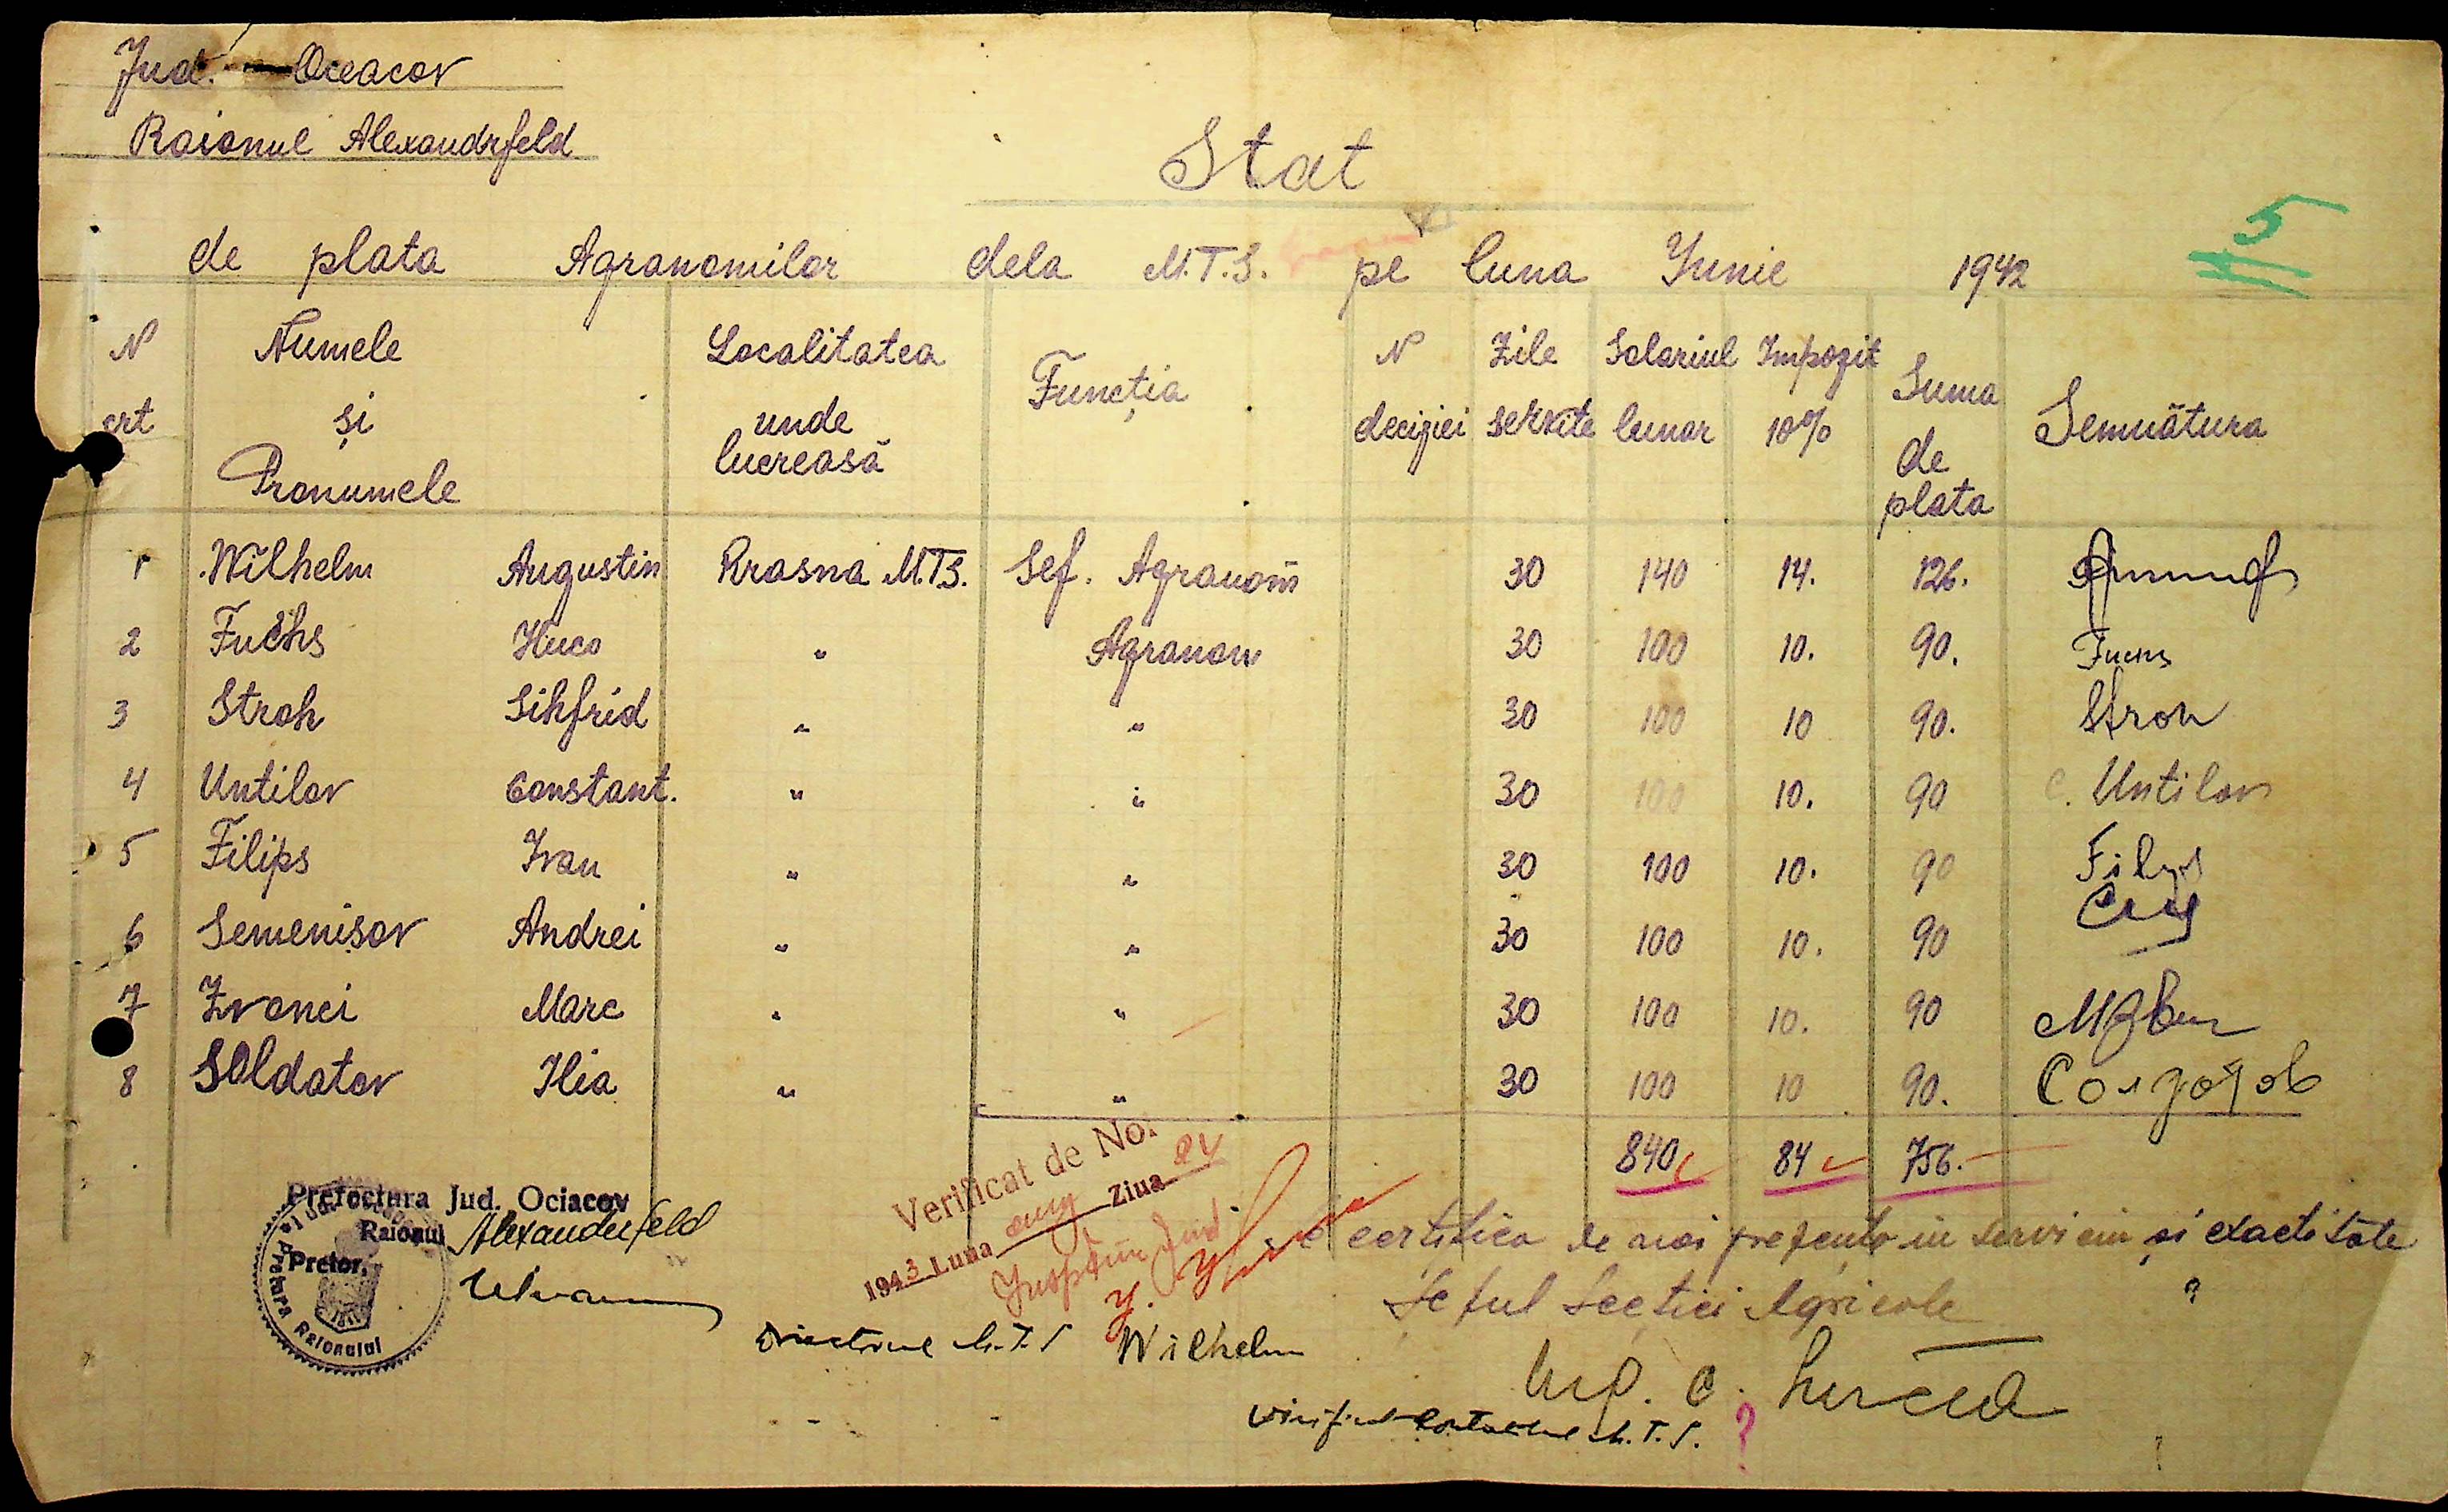 Jud. Oceacov
Raionul Alexandrfeld
5
Stat
de plata Agranomilor dela M.T.S. pe luna Yunie 1942
N crt Numele și Pronumele Localitatea unde lucreasă Funcția N deciziei Zile servite Salariul lunar Impozit 10% Suma de plata Semnătura
1 Wilhelm Augustin Krasna M.T.S. Sef. Agranom 30 140 14. 126.
2 Fuchs Huco " Agranom 30 100 10. 90. Fuchs
3 Stroh Sihfrid " " 30 100 10 90. Stroh
4 Untilov Constant. " " 30 100 10. 90 C. Untilov
5 Filips Ivan " " 30 100 10. 90 Filips
6 Semenisov Andrei " " 30 100 10. 90
7 Zvonei Marc " " 30 100 10. 90
8 Soldatov Ilia " " 30 100 10 90. Солдатов
840 84 756.
Prefectura Jud. Ociacov
Raionul Alexanderfeld
Pretor,
Pretura Raionului
Verificat de No.
1943 Luna aug Ziua 24
certifica de noi prezenta in serviciu și exactitate
Șeful Secției Agricole
?
Directorul M.T.S Wilhelm
Ing. C.
Contabilul M.T.S. ?